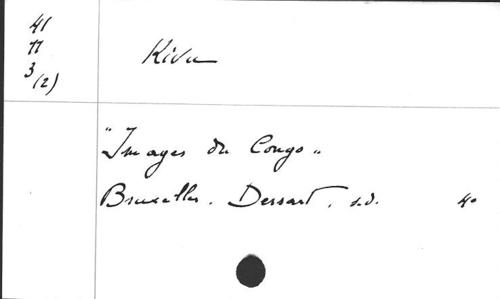 41
11
3
(2)
Kivu
"Images du Congo"
Bruxelles. Dessart. s.d. 4°